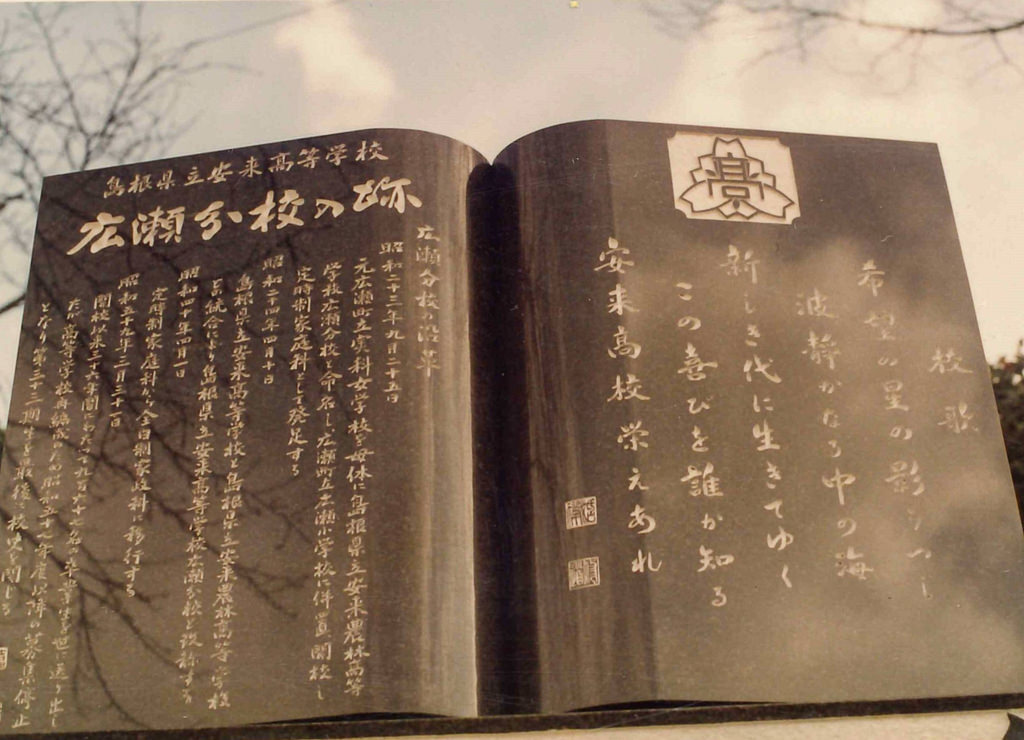 校歌
希望の星の影うつし
波静かなる中の海
新しき代に生きてゆく
この喜びを誰か知る
安来高校栄えあれ
高
島根県立安来高等学校
広瀬分校の跡
広瀬分校の沿革
昭和二十三年九月二十五日
元広瀬町立実科女学校を母体に島根県立安来農林高等
学校広瀬分校と命名し広瀬町立広瀬小学校に併置開校し
定時制家庭科として発足する
昭和二十四年四月十日
島根県立安来高等学校と島根県立安来農林高等学校
の統合により島根県立安来高等学校広瀬分校と改称する
昭和四十年四月一日
定時制家庭科から全日制家政科に移行する
昭和五十年三月三十一日
開校以来二十六年間にわたり九百六十七名の卒業生を世に送り出し
たが高等学校再編成のため昭和五十年度以降の募集停止
となり第二十三期生を最後に校史を閉じる